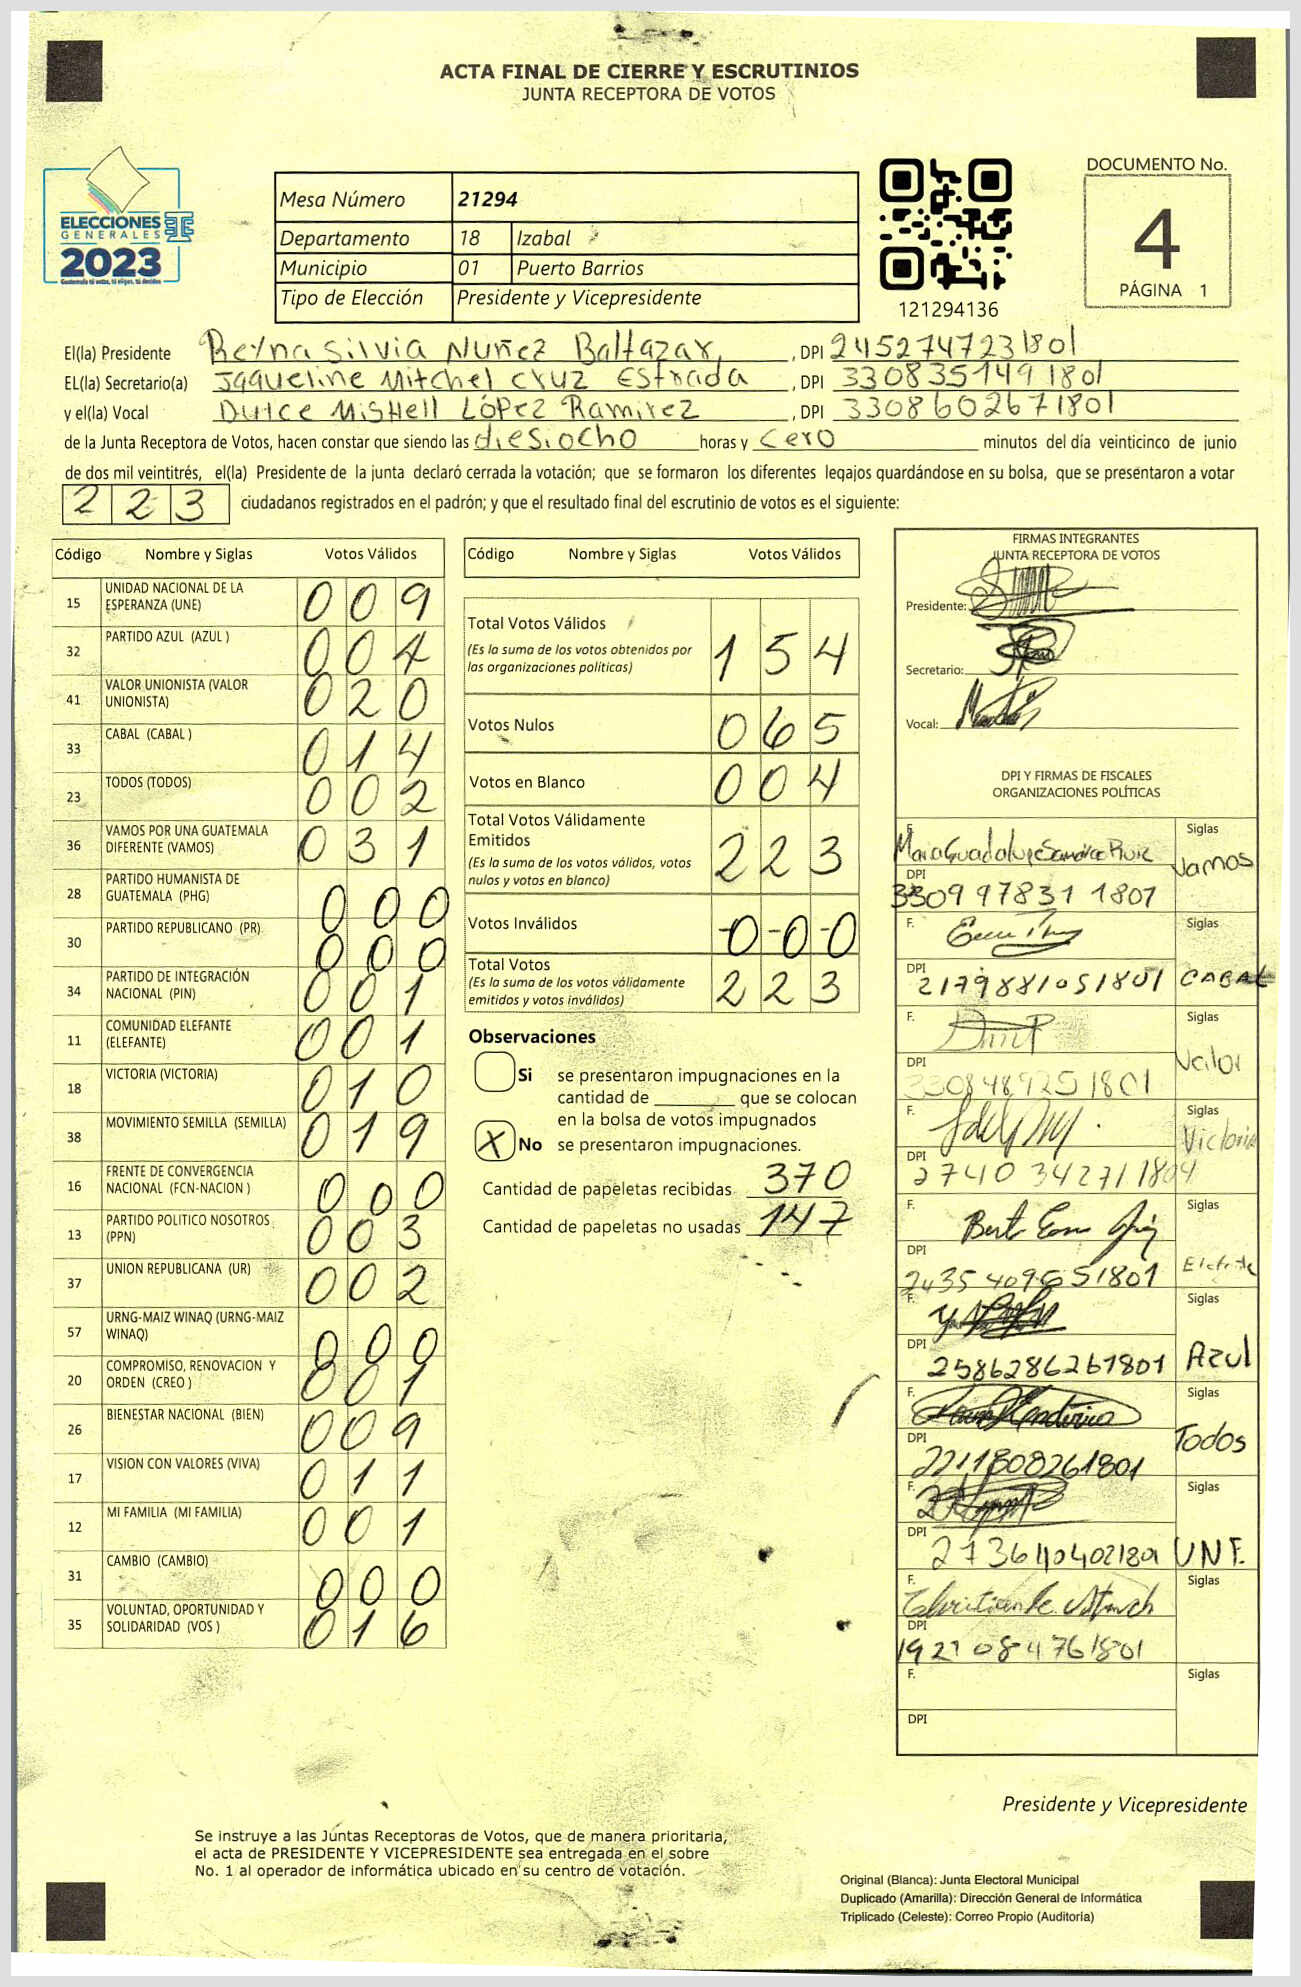 ACTA FINAL DE CIERRE Y ESCRUTINIOS
JUNTA RECEPTORA DE VOTOS
ELECCIONES
GENERALES
2023
Mesa Número 21294
Departamento 18 Izabal
Municipio 01 Puerto Barrios
Tipo de Elección Presidente y Vicepresidente
121294136
DOCUMENTO No.
4
PÁGINA 1
El(la) Presidente Reyna Silvia Nuñez Baltazar, DPI 2452747231801
EL(la) Secretario(a) Jaqueline Mitchel Cruz Estrada, DPI 3308351491801
y el(la) Vocal Dulce Mishell López Ramirez, DPI 3308602671801
de la Junta Receptora de Votos, hacen constar que siendo las diesiocho horas y cero minutos del día veinticinco de junio
de dos mil veintitrés, el(la) Presidente de la junta declaró cerrada la votación; que se formaron los diferentes legajos guardándose en su bolsa, que se presentaron a votar
223 ciudadanos registrados en el padrón; y que el resultado final del escrutinio de votos es el siguiente:
Código Nombre y Siglas Votos Válidos
15 UNIDAD NACIONAL DE LA
ESPERANZA (UNE) 009
32 PARTIDO AZUL (AZUL ) 004
41 VALOR UNIONISTA (VALOR
UNIONISTA) 020
33 CABAL (CABAL ) 014
23 TODOS (TODOS) 002
36 VAMOS POR UNA GUATEMALA
DIFERENTE (VAMOS) 031
28 PARTIDO HUMANISTA DE
GUATEMALA (PHG) 000
30 PARTIDO REPUBLICANO (PR) 000
34 PARTIDO DE INTEGRACIÓN
NACIONAL (PIN) 001
11 COMUNIDAD ELEFANTE
(ELEFANTE) 001
18 VICTORIA (VICTORIA) 010
38 MOVIMIENTO SEMILLA (SEMILLA) 019
16 FRENTE DE CONVERGENCIA
NACIONAL (FCN-NACION ) 000
13 PARTIDO POLITICO NOSOTROS
(PPN) 003
37 UNION REPUBLICANA (UR) 002
57 URNG-MAIZ WINAQ (URNG-MAIZ
WINAQ) 000
20 COMPROMISO, RENOVACION Y
ORDEN (CREO ) 001
26 BIENESTAR NACIONAL (BIEN) 009
17 VISION CON VALORES (VIVA) 011
12 MI FAMILIA (MI FAMILIA) 001
31 CAMBIO (CAMBIO) 000
35 VOLUNTAD, OPORTUNIDAD Y
SOLIDARIDAD (VOS ) 016
Código Nombre y Siglas Votos Válidos
Total Votos Válidos
(Es la suma de los votos obtenidos por
las organizaciones políticas) 154
Votos Nulos 065
Votos en Blanco 004
Total Votos Válidamente
Emitidos
(Es la suma de los votos válidos, votos
nulos y votos en blanco) 223
Votos Inválidos -0-0-0
Total Votos
(Es la suma de los votos válidamente
emitidos y votos inválidos) 223
Observaciones
Si se presentaron impugnaciones en la
cantidad de ________ que se colocan
en la bolsa de votos impugnados
X No se presentaron impugnaciones.
Cantidad de papeletas recibidas 370
Cantidad de papeletas no usadas 147
FIRMAS INTEGRANTES
JUNTA RECEPTORA DE VOTOS
Presidente:
Secretario:
Vocal:
DPI Y FIRMAS DE FISCALES
ORGANIZACIONES POLÍTICAS
F. Siglas
Vamos
DPI 330997831 1801
F. Siglas
DPI 2179881051801 CABAL
F. Siglas
Valor
DPI 3308489251801
F. Siglas
Victoria
DPI 2740342711804
F. Siglas
DPI 2435409651801
F. Siglas
DPI 2586286261801 Azul
F. Siglas
Todos
DPI 2211808261801
F. Siglas
DPI UNE.
F. Siglas
DPI 1921084761801
F. Siglas
DPI
Presidente y Vicepresidente
Se instruye a las Juntas Receptoras de Votos, que de manera prioritaria,
el acta de PRESIDENTE Y VICEPRESIDENTE sea entregada en el sobre
No. 1 al operador de informática ubicado en su centro de votación.
Original (Blanca): Junta Electoral Municipal
Duplicado (Amarilla): Dirección General de Informática
Triplicado (Celeste): Correo Propio (Auditoria)